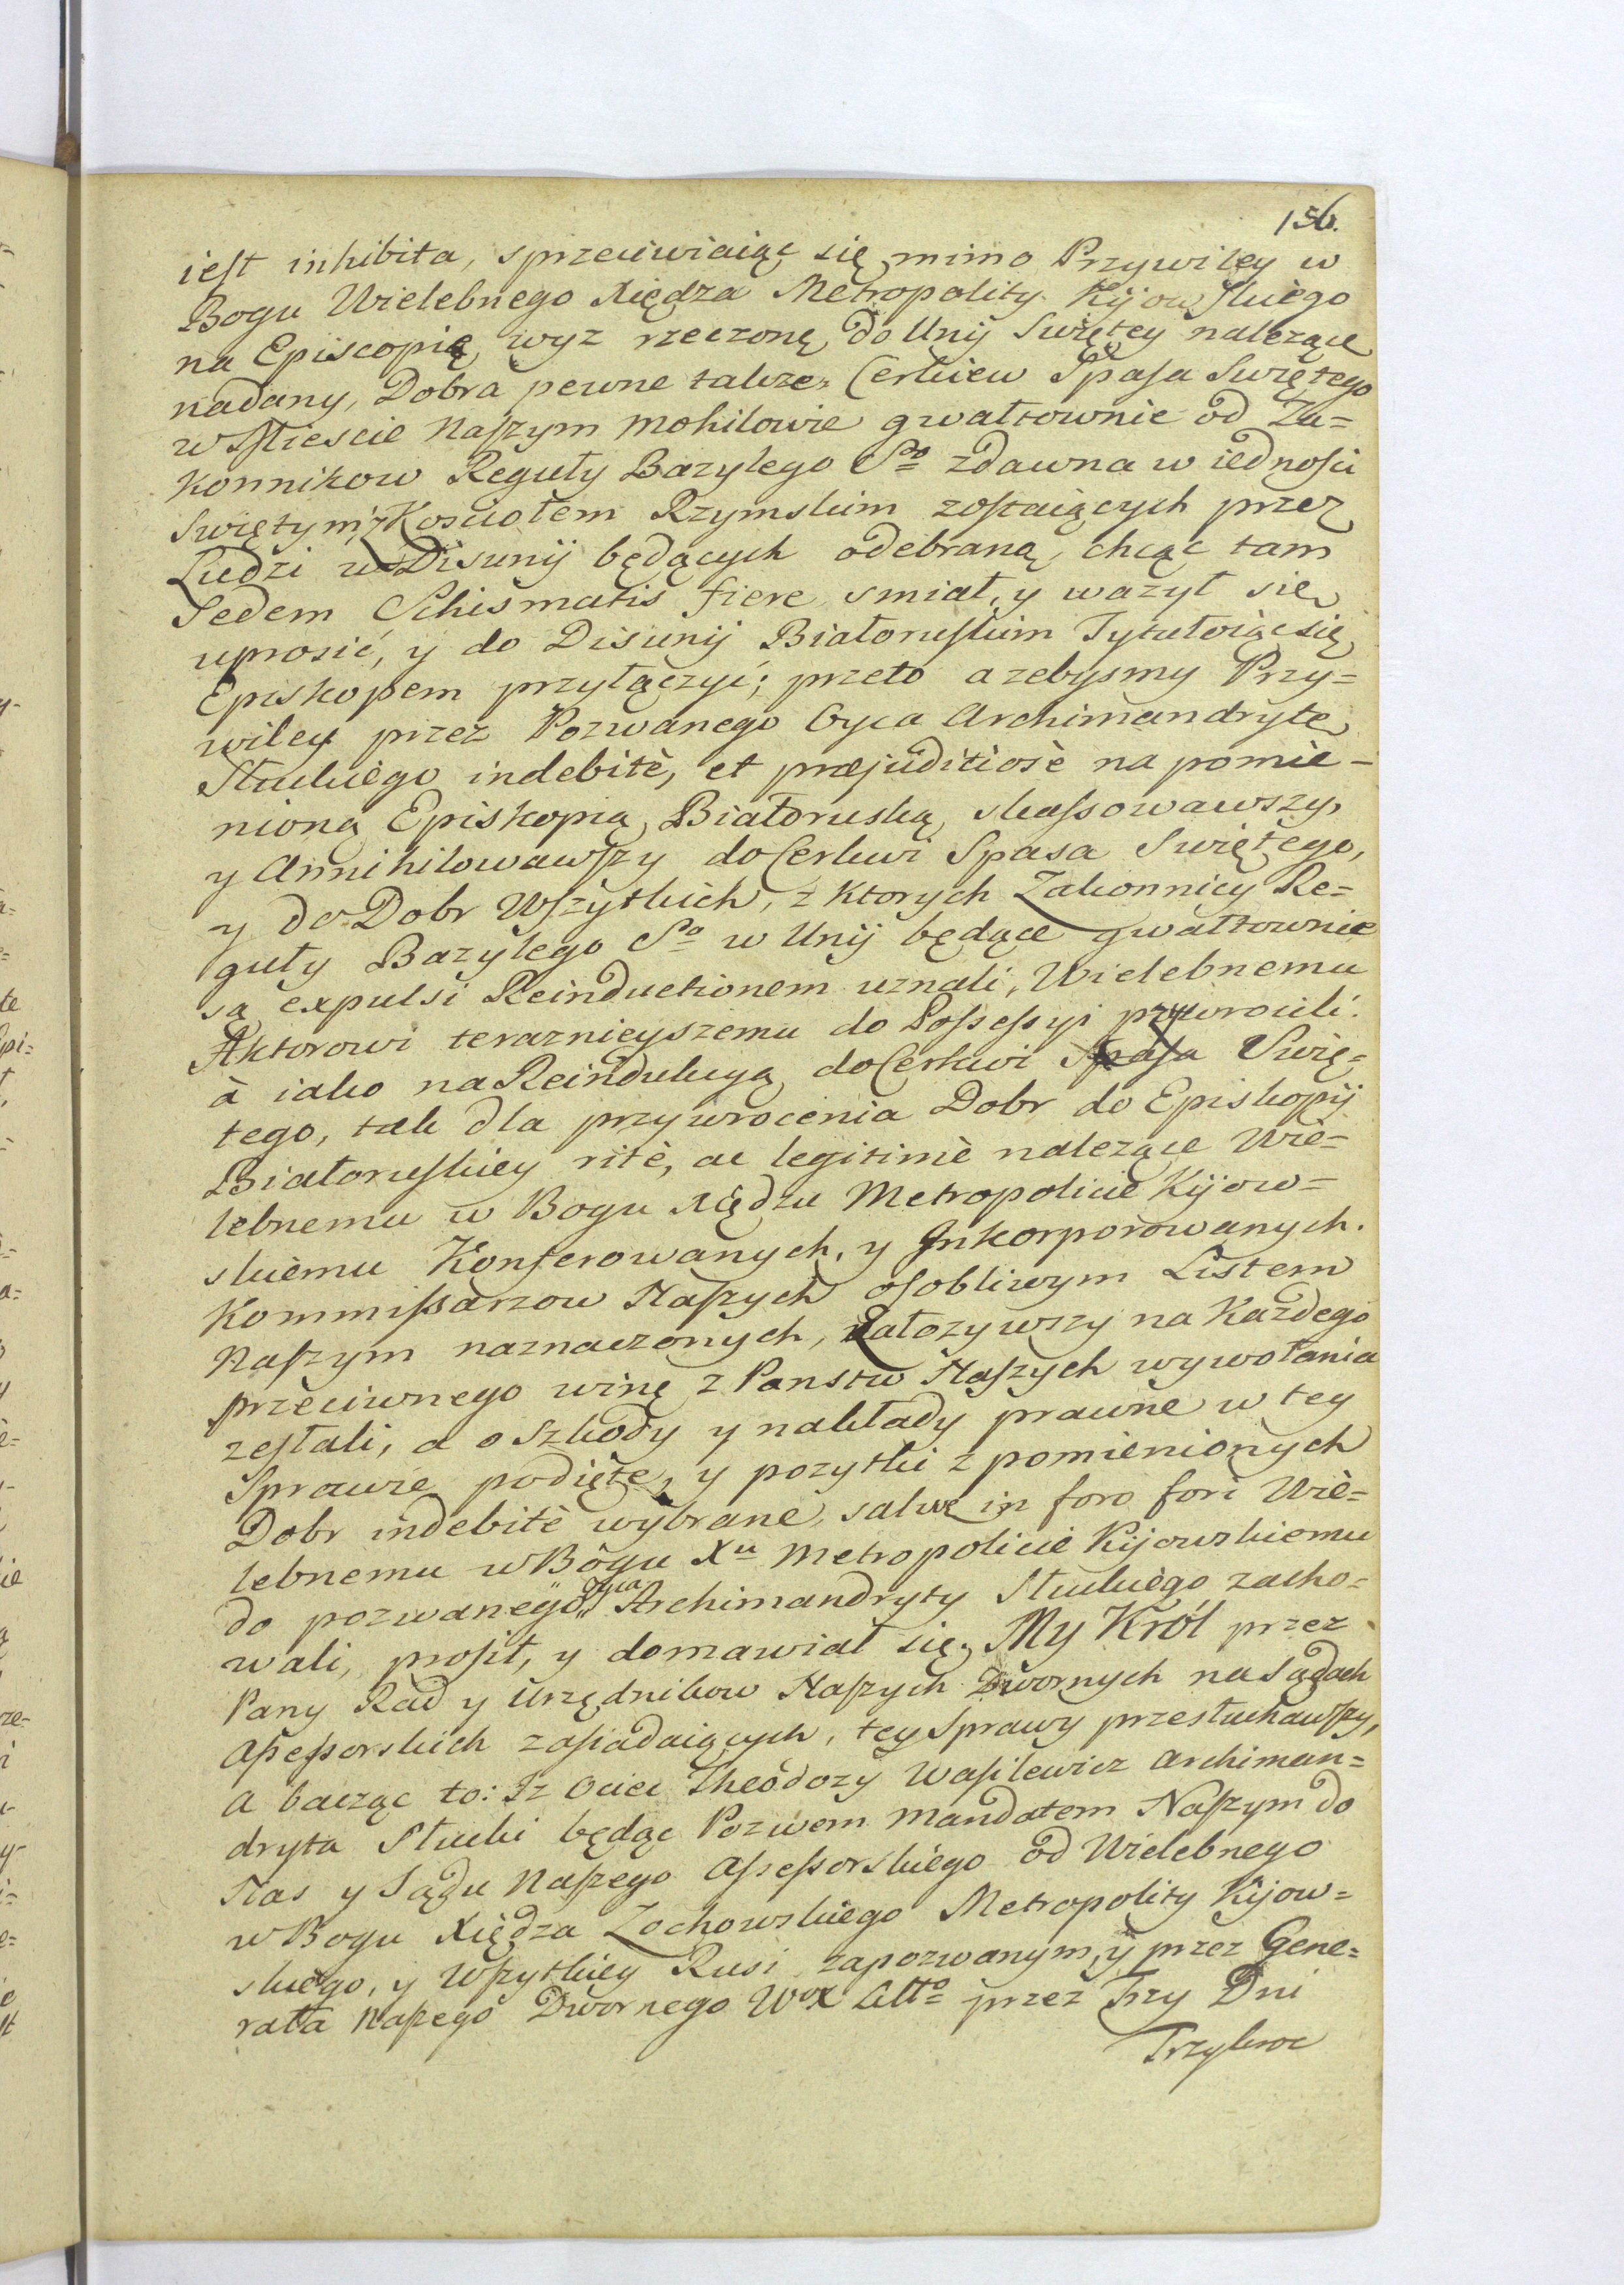 156.
iest inhibita, sprzeciwiaiąc się mimo Przywiley w
Bogu Wielebnego Xiędza Metropolity Kijowskiego
na Episcopię wyz rzeczoną do Unij Swiętey nalezące
nadany, Dobra pewne takze Cerkiew Spasa Swiętego
w Miescie Naszym Mohilowie gwałtownie od Za=
konnikow Reguły Bazylego Sgo zdawna w iednosci
Swiętym z Kosciołem Rzymskim zostaiących przez
Ludzi w Disunij będących odebraną, chcąc tam
Sedem Schismatis fiere smiał, y wazył się
uprosić, y do Disunij Białoruskim Tytułoiąc się
Episkopem przyłączyć; przeto azebysmy Przy=
wiley przez Pozwanego Oyca Archimandrytę
Słuckiego indebitè, et præjuditiosè na pomie-
nioną Episkopią Białoruską skassowawszy,
y Annihilowawszy do Cerkwi Spasa Swiętego,
y do Dobr Wszytkich, z ktorych Zakonnicy Re=
guły Bazylego So w Unij będące gwałtownie
są expulsi Reinductionem uznali, Wielebnemu
Aktorowi teraznieyszemu do Possessyi przywrocili.
à iako na Reindukcyą do Cerkwi Spasa Swię=
tego, tak dla przywrocenia Dobr do Episkopij
Białoruskiey ritè, ac legitimè nalezące Wie=
lebnemu w Bogu Xiędzu Metropolicie Kijow=
skiemu Konferowanych, y Inkorporowanych.
Kommissarzow Naszych osobliwym Listem
Naszym naznaczonych, załozywszy na Kazdego
przeciwnego winę z Panstw Naszych wywołania
zesłali, a o szkody y nakłady prawne w tey
Sprawie podięte, y pozytki z pomienionych
Dobr indebitè wybrane, salwę in foro fori Wie=
lebnemu w Bogu Xu Metropolicie Kijowskiemu
do pozwanego Oyca Archimandryty Słuckiego zacho=
wali, prosił, y domawiał się. My Król przez
Pany Rad y Urzędnikow Naszych Dwornych na Sądach
Assessorskich zasiadaiących, tey Sprawy przesłuchawszy,
A bacząc to: Iz Ociec Theodozy Wasilewicz Archiman=
dryta Słucki będąc Pozwem Mandatem Naszym do
Nas y Sądu Naszego Assessorskiego od Wielebnego
w Bogu Xiędza Zochowskiego Metropolity Kijow=
skiego, y Wszytkiey Rusi zapozwanym, y przez Gene=
rała Naszego Dwornego przez Trzy Dni
Trzykroc